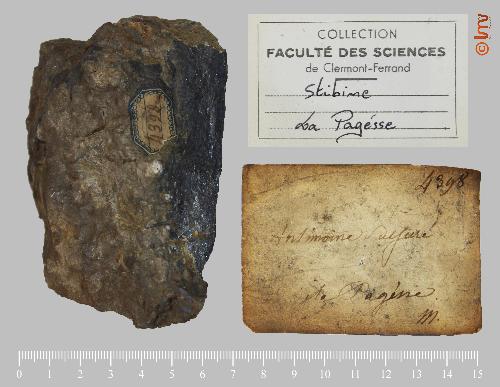 COLLECTION
FACULTÉ DES SCIENCES
de Clermont-Ferrand
Stibine
La Pagésse
4398
Antimoine Sulfuré
Pagésse.
M.
0 1 2 3 4 5 6 7 8 9 10 11 12 13 14 15